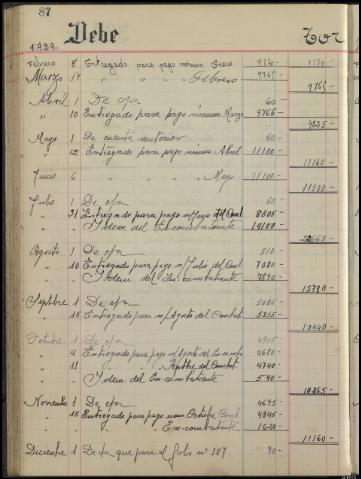 87
1939. Debe Por
Febrero 8 Entregado para pago nómina Enero 9770- 9770-
Marzo 14 " " " " Febrero 9765-
9765-
Abril 1 De c/a 60-
" 10 Entregado para pago nómina Marzo 9765
9825-
Mayo 1 De cuenta anterior 60-
" 12 Entregado para pago nómina Abril 11100-
11160-
Junio 6 " " " " Mayo 11100-
11100-
Julio 1 De c/a 60-
" 31 Entregado para pago n/ Mayo del Comt 8605-
" " Idem. del Ex-combatiente 14100-
22665-
Agosto 1 De c/a 810-
" 10 Entregado para pago n/ Julio del Comt. 7080-
" " Idem del Ex-combatiente 7890-
15780-
Septbre 1 De c/a 5085-
" 15 Entregado para n/ Agosto del Combat. 5355-
10440-
Octubre 1 De c/a 4905-
" 4 Entregado para pago n/ Agosto del Ex-comb 4680-
" 11 " " " " Septbre del Comt. 4740-
" " Idem. del Ex-combatiente 540-
Noviembre 1 De c/a 4695-
" 15 Entregado para pago nom. Octubre Comt 4845-
" " " " " Ex-combatiente 1620-
11160-
Diciembre 1 De c/a que pasa al folio nº 187 90-